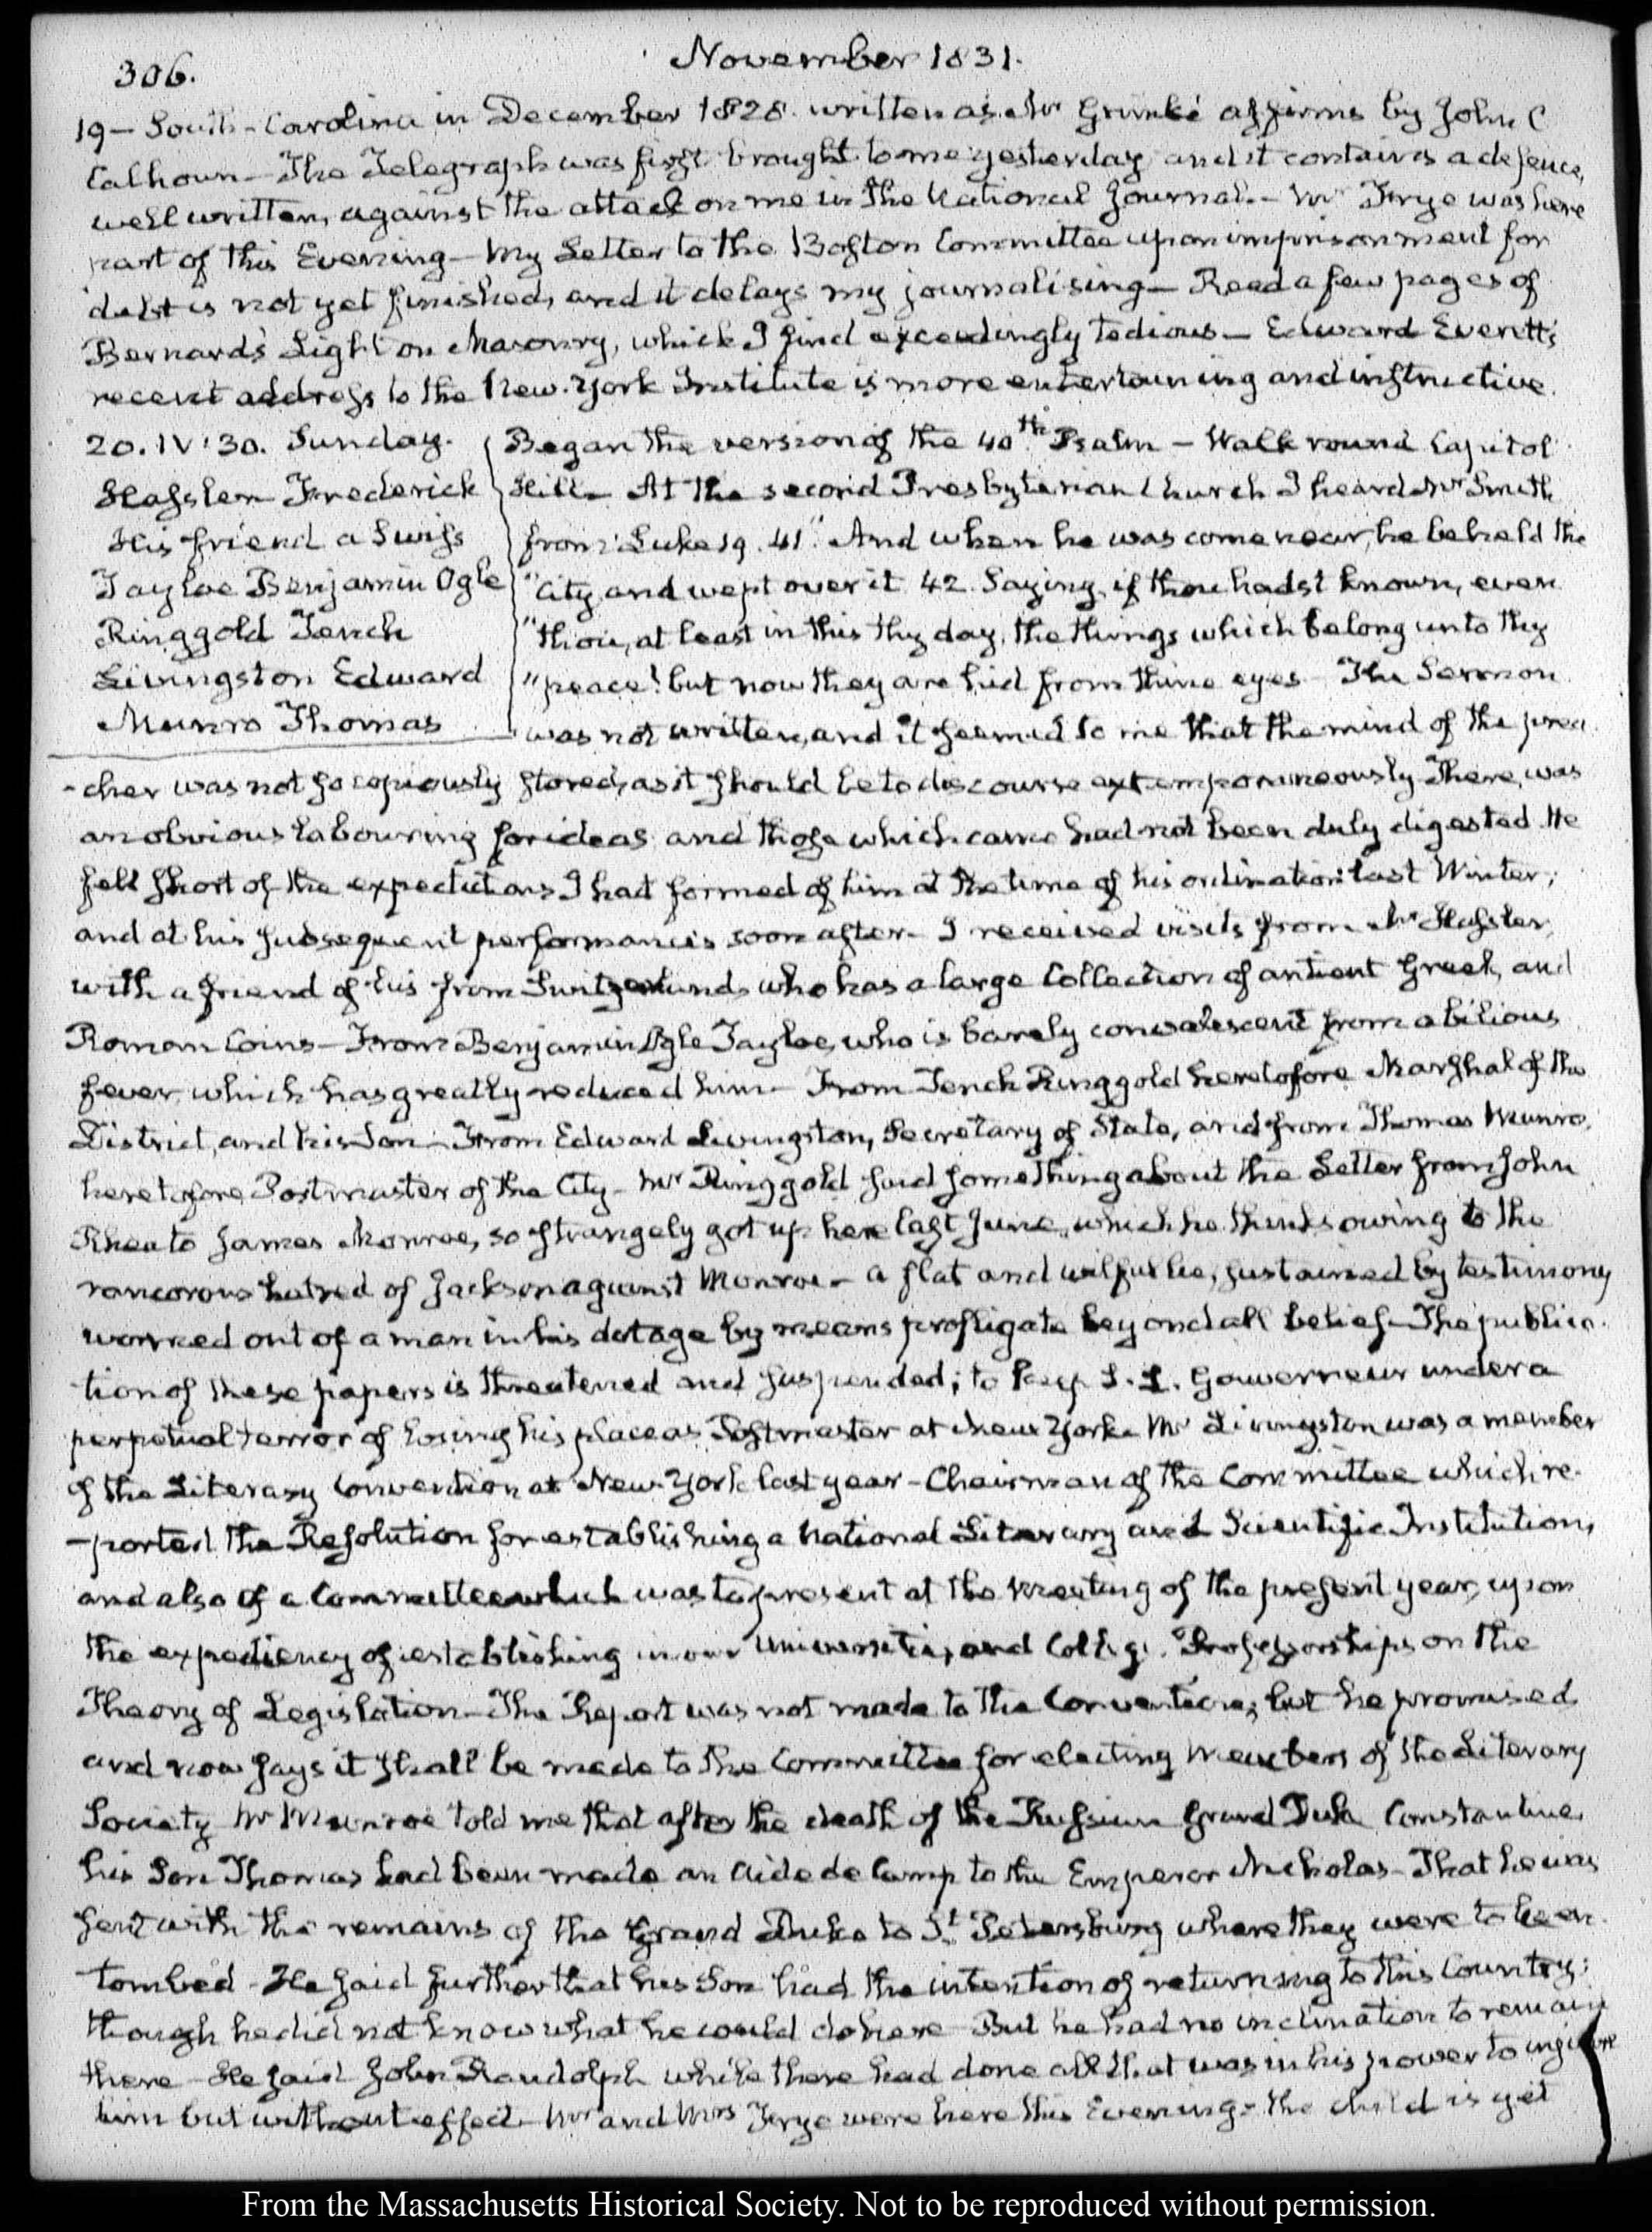 306.
November 1831.
19 — South-Carolina in December 1828. written as Mr Grimké affirms by John C
Calhoun — The Telegraph was first brought to me yesterday, and it contains a defence,
well written, against the attack on me in the National Journal. — Mr Frye was here
part of this Evening — My Letter to the Boston Committee upon imprisonment for
debt is not yet finished, and it delays my journalising — Read a few pages of
Bernard's Light on Masonry, which I find exceedingly tedious — Edward Everett's
recent address to the New-York Institute is more entertaining and instructive.
20. IV:30. Sunday.
Hassler Frederick
His friend a Swiss
Tayloe Benjamin Ogle
Ringgold Tench
Livingston Edward
Munro Thomas
Began the version of the 40th Psalm — Walk round Capitol
Hill — At the second Presbyterian Church I heard Mr Smith
from Luke 19. 41. "And when he was come near, he beheld the
"City, and wept over it 42. Saying, if thou hadst known, even
"thou, at least in this thy day, the things which belong unto thy
"peace! but now they are hid from thine eyes — The Sermon
was not written, and it seemed to me that the mind of the prea
-cher was not so copiously stored, as it should be to discourse extemporaneously There was
an obvious labouring for ideas and those which came had not been duly digested. He
fell short of the expectations I had formed of him at the time of his ordination last Winter;
and at his subsequent performances soon after — I received visits from Mr Hassler,
with a friend of his from Switzerland, who has a large Collection of antient Greek, and
Roman Coins — From Benjamin Ogle Tayloe, who is barely convalescent from a bilious
fever, which has greatly reduced him — From Tench Ringgold heretofore Marshal of the
District, and his Son — From Edward Livingston, Secretary of State, and from Thomas Munro,
heretofore Postmaster of the City — Mr Ringgold said something about the Letter from John
Rhea to James Monroe, so strangely got up here last June, which he thinks owing to the
rancorous hatred of Jackson against Monroe — a flat and wilful lie, sustained by testimony
wormed out of a man in his dotage by means profligate beyond all belief — The publica-
tion of these papers is threatened and suspended; to keep S. L. Gouverneur under a
perpetual terror of losing his place as Postmaster at New York. Mr Livingston was a member
of the Literary Convention at New-York last year — Chairman of the Committee which re-
-ported the Resolution for establishing a National Literary and Scientific Institution,
and also of a Committee which was to present at the Meeting of the present year, upon
the expediency of establishing in our Universities, and Colleges. Professorships on the
Theory of Legislation — The Report was not made to the Convention; but he promised
and now says it shall be made to the Committee for electing Members of the Literary
Society Mr Munroe told me that after the death of the Russian Grand Duke Constantine,
his Son Thomas had been made an Aide de Camp to the Emperor Nicholas — That he was
sent with the remains of the Grand Duke to St Petersburg where they were to be en-
tombed — He said further that his Son had the intention of returning to this Country;
though he did not know what he could do here — But he had no inclination to remain
there — He said John Randolph while there had done all that was in his power to injure
him but without effect — Mr and Mrs Frye were here this Evening — the child is yet
From the Massachusetts Historical Society. Not to be reproduced without permission.